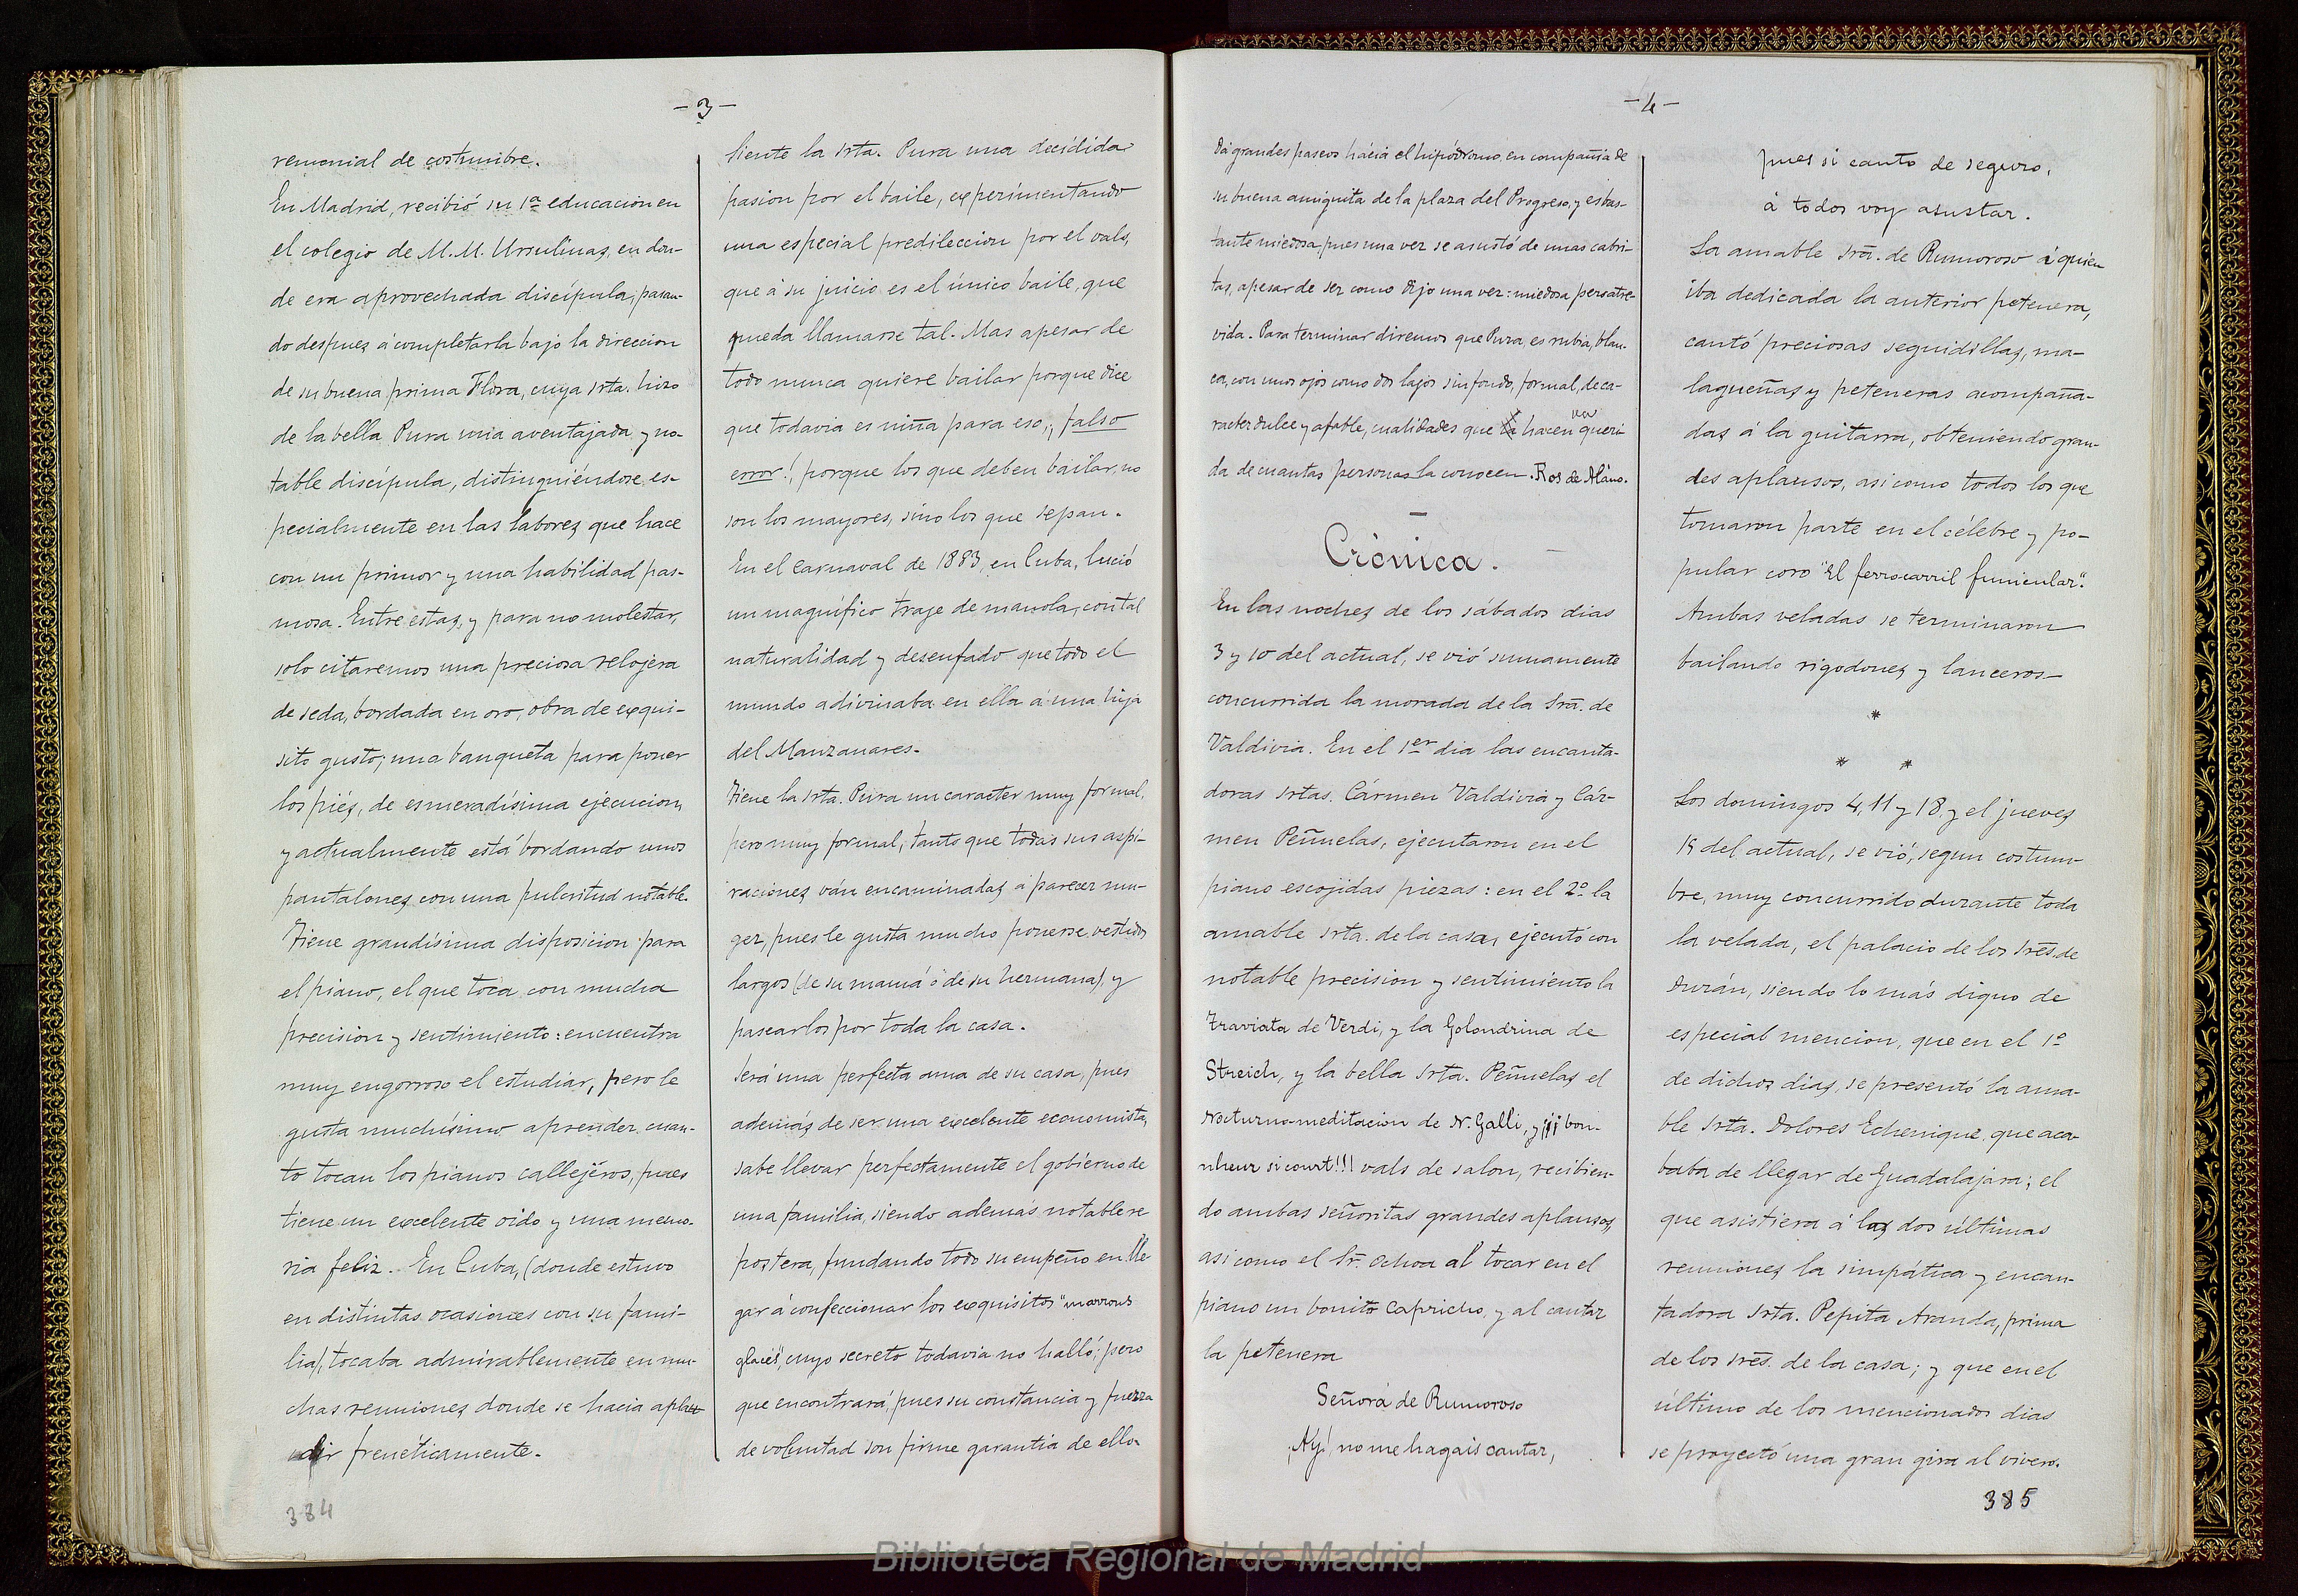 - 3 -
remonial de costumbre.
En Madrid, recibió su 1ª educacion en
el colegio de M.M. Ursulinas, en don-
de era aprovechada discípula, pasan-
do despues á completarla bajo la direccion
de su buena prima Flora, cuya Srta. hizo
de la bella Pura una aventajada y no-
table discípula, distinguiéndose es-
pecialmente en las labores que hace
con un primor y una habilidad pas-
mosa. Entre estas, y para no molestar,
solo citaremos una preciosa relojera
de seda, bordada en oro, obra de exqui-
sito gusto; una banqueta para poner
los piés, de esmeradísima ejecucion,
y actualmente está bordando unos
pantalones con una pulcritud notable.
Tiene grandísima disposicion para
el piano, el que toca, con mucha
precision y sentimiento: encuentra
muy engorroso el estudiar, pero le
gusta muchísimo aprender cuan-
to tocan los pianos callejéros, pues
tiene un excelente oido y una memo-
ria feliz. En Cuba, (donde estuvo
en distintas ocasiones con su fami-
lia), tocaba admirablemente en mu-
chas reuniones donde se hacia aplau-
dir frenéticamente.
384
Siente la Srta. Pura una decidida
pasion por el baile, experimentando
una especial predileccion por el vals,
que á su juicio es el único baile, que
pueda llamarse tal. Mas apesar de
todo nunca quiere bailar porque dice
que todavia es niña para eso, ¡falso
error!, porque los que deben bailar, no
son los mayores, sino los que sepan.
En el Carnaval de 1883, en Cuba, lució
un magnífico traje de manola, con tal
naturalidad y desenfado que todo el
mundo adivinaba en ella á una hija
del Manzanares.
Tiene la Srta. Pura un caracter muy formal,
pero muy formal, tanto que todas sus aspi-
raciones ván encaminadas á parecer mu-
ger, pues le gusta mucho ponerse vestidos
largos (de su mamá ó de su hermana), y
pasearlos por toda la casa.
Será una perfecta ama de su casa, pues
además de ser una excelente economista,
sabe llevar perfectamente el gobierno de
una familia, siendo además notable re
postera, fundando todo su empeño en lle
gar á confeccionar los exquisitos "marrons
glacés", cuyo secreto todavia no halló; pero
que encontrará, pues su constancia y fuerza
de voluntad son firme garantia de ello.
- 4 -
Dá grandes paseos hácia el hipódromo, en compañía de
su buena amiguita de la plaza del Progreso, y es bas-
tante miedosa, pues una vez se asustó de unas cabri-
tas, apesar de ser como dijo una vez: miedosa pero atre-
vida. Para terminar diremos que Pura, es rubia, blan-
ca, con unos ojos como dos lagos sin fondo, formal, de ca-
racter dulce y afable, cualidades que hacen queri-
da de cuantas personas la conocen. Ros de Alano.
Crónica.
En las noches de los sábados dias
3 y 10 del actual, se vió sumamente
concurrida la morada de la Srã. de
Valdivia. En el 1er dia las encanta-
doras Srtas. Cármen Valdivia y Cár-
men Peñuelas, ejecutaron en el
piano escojidas piezas: en el 2º la
amable Srta. de la casa, ejecutó con
notable precision y sentimiento la
Traviata de Verdi, y la Golondrina de
Streich, y la bella Srta. Peñuelas el
Nocturno-meditacion de N. Galli, y ¡¡¡bon-
nheur si court!!! vals de salon, recibien-
do ambas señoritas grandes aplausos,
asi como el Sr. Ochoa al tocar en el
piano un bonito Capricho, y al cantar
la petenera
Señora de Rumoroso
¡Ay! no me hagais cantar,
pues si canto de seguro,
á todos voy asustar.
La amable Srã. de Rumoroso á quien
iba dedicada la anterior petenera,
cantó preciosas seguidillas, ma-
lagueñas y peteneras acompaña-
das á la guitarra, obteniendo gran-
des aplausos, asi como todos los que
tomaron parte en el célebre y po-
pular coro "El ferrocarril funicular".
Ambas veladas se terminaron
bailando rigodones y lanceros-
*
* *
Los domingos 4, 11 y 18 y el jueves
15 del actual, se vió, segun costum-
bre, muy concurrido durante toda
la velada, el palacio de los Srẽs. de
Durán, siendo lo más digno de
especial mencion, que en el 1º
de dichos dias, se presentó la ama-
ble Srta. Dolores Echenique, que aca-
baba de llegar de Guadalajara; el
que asistiera á las dos últimas
reuniones la simpática y encan-
tadora Srta. Pepita Aranda, prima
de los Srẽs. de la casa; y que en el
último de los mencionados dias
se proyectó una gran gira al vivero.
385
Biblioteca Regional de Madrid